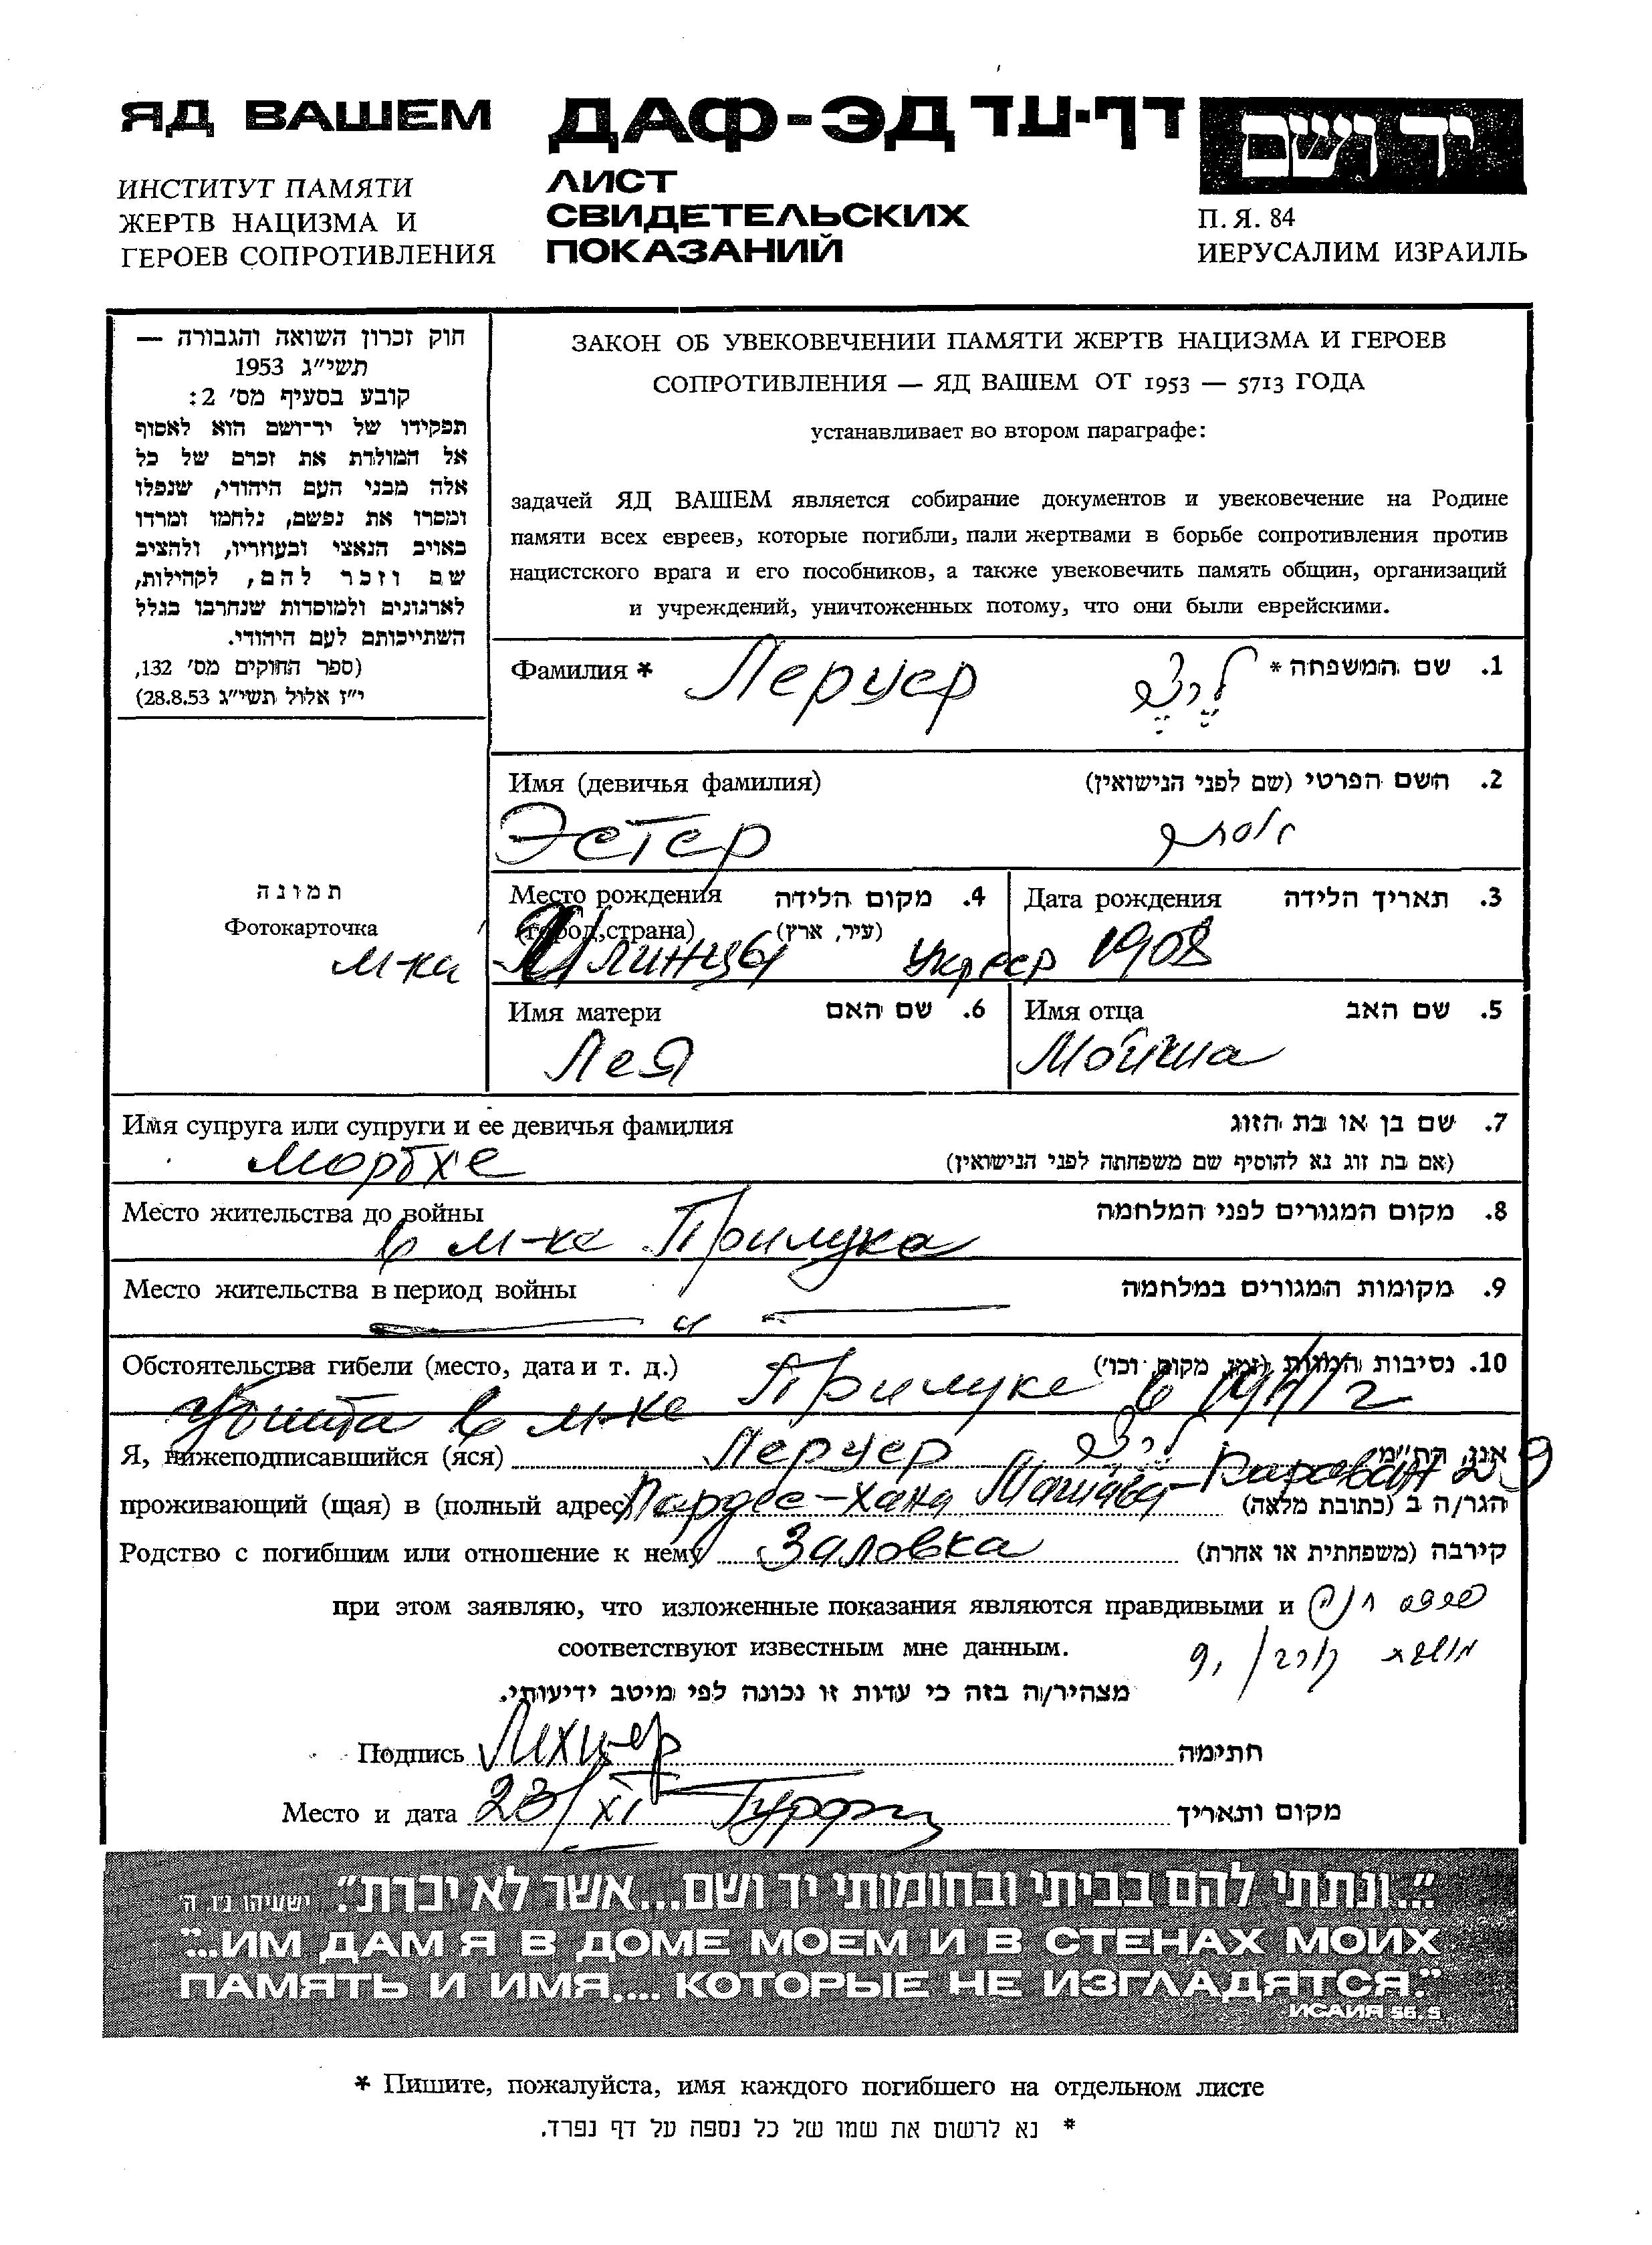 ЯД ВАШЕМ
ИНСТИТУТ ПАМЯТИ
ЖЕРТВ НАЦИЗМА И
ГЕРОЕВ СОПРОТИВЛЕНИЯ
ДАФ-ЭД דף-עד
ЛИСТ
СВИДЕТЕЛЬСКИХ
ПОКАЗАНИЙ
יד ושם
П. Я. 84
ИЕРУСАЛИМ ИЗРАИЛЬ
חוק זכרון השואה והגבורה —
תשי״ג 1953
קובע בסעיף מס׳ 2:
תפקידו של יד-ושם הוא לאסוף
אל המולדת את זכרם של כל
אלה מבני העם היהודי, שנפלו
ומסרו את נפשם, נלחמו ומרדו
באויב הנאצי ובעוזריו, ולהציב
שם וזכר להם, לקהילות,
לארגונים ולמוסדות שנחרבו בגלל
השתייכותם לעם היהודי.
(ספר החוקים מס׳ 132,
י״ז אלול תשי״ג 28.8.53)
ЗАКОН ОБ УВЕКОВЕЧЕНИИ ПАМЯТИ ЖЕРТВ НАЦИЗМА И ГЕРОЕВ
СОПРОТИВЛЕНИЯ — ЯД ВАШЕМ ОТ 1953 — 5713 ГОДА
устанавливает во втором параграфе:
задачей ЯД ВАШЕМ является собирание документов и увековечение на Родине
памяти всех евреев, которые погибли, пали жертвами в борьбе сопротивления против
нацистского врага и его пособников, а также увековечить память общин, организаций
и учреждений, уничтоженных потому, что они были еврейскими.
Фамилия * Лерцер 1. שם המשפחה * לרצר
Имя (девичья фамилия) 2. השם הפרטי (שם לפני הנישואין)
Эстер אסתר
תמונה
Фотокарточка
Место рождения 4. מקום הלידה
(город, страна) (עיר, ארץ)
м-ка Илинцы Укрсср
Дата рождения 3. תאריך הלידה
1908
Имя матери 6. שם האם
Лея
Имя отца 5. שם האב
Мойша
Имя супруга или супруги и ее девичья фамилия 7. שם בן או בת הזוג
Мортхе (אם בת זוג נא להוסיף שם משפחתה לפני הנישואין)
Место жительства до войны 8. מקום המגורים לפני המלחמה
в м-ке Прилука
Место жительства в период войны 9. מקומות המגורים במלחמה
— " —
Обстоятельства гибели (место, дата и т. д.) 10. נסיבות המוות (זמן, מקום וכו׳)
Убита в м-ке Прилуке в 1941 г
Я, нижеподписавшийся (яся) Лерцер לרצר אני, הח״מ
проживающий (щая) в (полный адрес) Пардес-Хана Караван 29 הגר/ה ב (כתובת מלאה)
Родство с погибшим или отношение к нему Заловка קירבה (משפחתית או אחרת)
при этом заявляю, что изложенные показания являются правдивыми и
соответствуют известным мне данным.
מצהיר/ה בזה כי עדות זו נכונה לפי מיטב ידיעותי.
Подпись חתימה
Место и дата 23/XI מקום ותאריך
"...ונתתי להם בביתי ובחומותי יד ושם...אשר לא יכרת". ישעיהו נ״ו, ה׳
"...ИМ ДАМ Я В ДОМЕ МОЕМ И В СТЕНАХ МОИХ
ПАМЯТЬ И ИМЯ.... КОТОРЫЕ НЕ ИЗГЛАДЯТСЯ."
ИСАИЯ 56.5
* Пишите, пожалуйста, имя каждого погибшего на отдельном листе
* נא לרשום את שמו של כל נספה על דף נפרד.